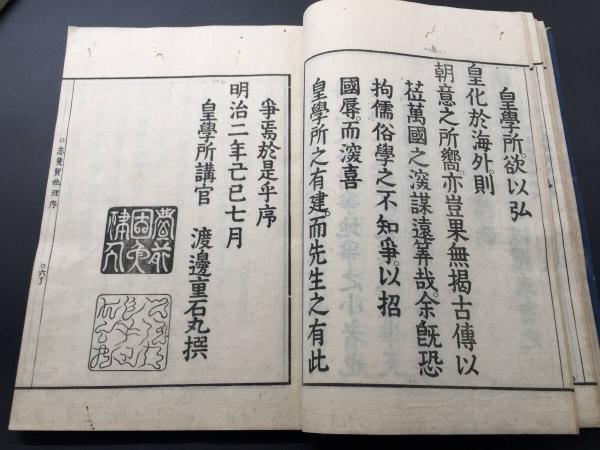 皇學所。欲以弘
皇化於海外。則
朝意之所嚮。亦豈果無揭古傳以
莅萬國之深謀遠筭哉。余既恐
拘儒俗學之不知爭。以招
國辱。而深喜
皇學所之有建。而先生之有此
爭焉於是乎序
明治二年己巳七月
皇學所講官 渡邊重石丸撰
序